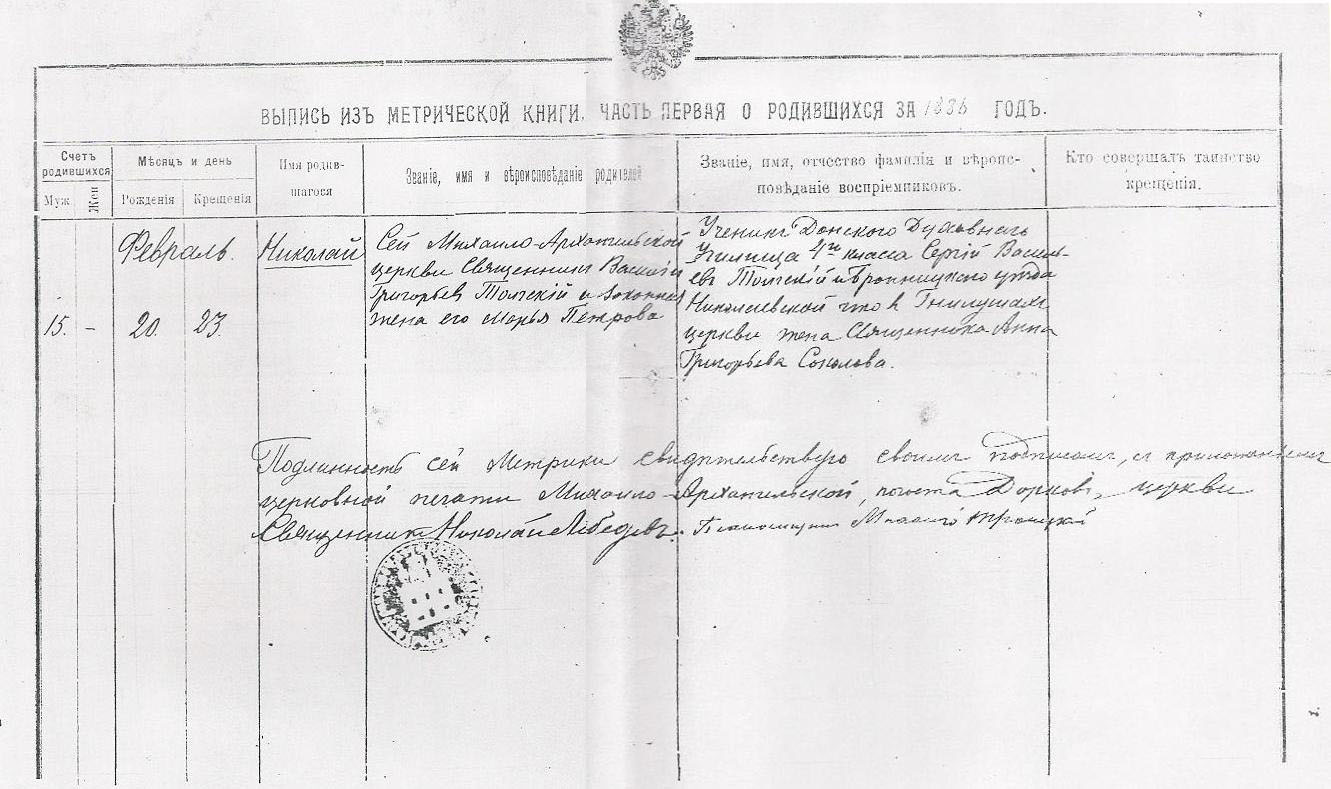 ВЫПИСЬ ИЗЪ МЕТРИЧЕСКОЙ КНИГИ. ЧАСТЬ ПЕРВАЯ О РОДИВШИХСЯ ЗА ГОДЪ.
Счетъ родившихся
Муж.
Жен
Мѣсяцъ и день
Рожденія
Крещенія
Имя родив-
шагося
Званіе, имя и вѣроисповѣданіе родителей
Званіе, имя, отчество фамилія и вѣроис-
повѣданіе воспріемниковъ.
Кто совершалъ таинство
крещенія.
15.
–
Февраль.
20.
23.
Николай
Сей Михаило-Архангельской
церкви Священникъ Василій
Григорьевъ и законная
жена его Марья Петрова
Ученикъ Донского Духовнаго
Училища 4го класса Сергій Василь-
евъ и Бронницкаго уѣзда
Николаевской что въ Гнилушахъ
церкви жена Священника Анна
Григорьева Соколова.
Подлинность сей Метрики свидѣтельствую своимъ подписомъ, съ приложеніемъ
церковной печати Михаило-Архангельской, погоста церкви
Священникъ Николай Лебедевъ. Псаломщикъ Троицкій